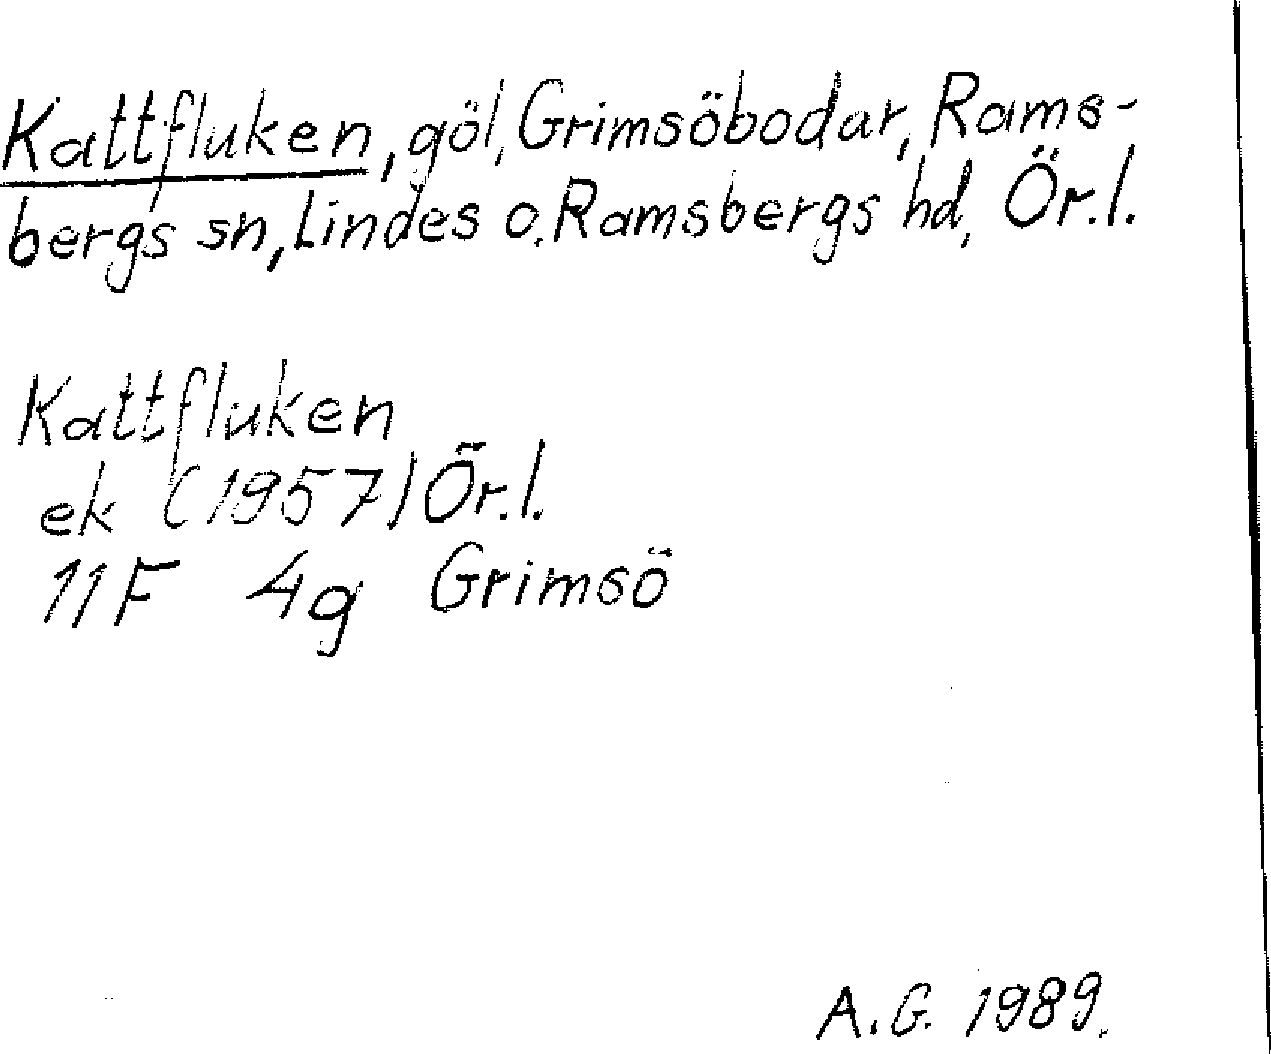 Kattfluken, göl, Grimsöbodar, Rams-
bergs sn, Lindes o. Ramsbergs hd, Ör.l.
Kattfluken
ek (1957) Ör.l.
11F 4g Grimsö
A.G. 1989.